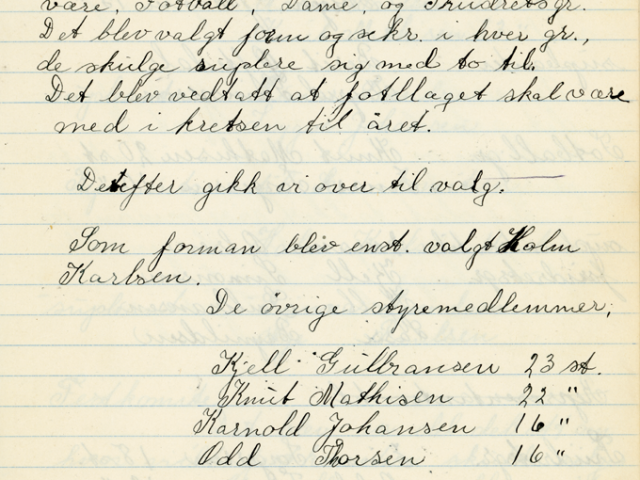 være, Fotball, Dame, og Friidretsgr.
Det blev valgt form og sekr. i hver gr.,
de skulge suplere sig med to til.
Det blev vedtatt at fotllaget skal være
med i kretsen til året.
Detefter gikk vi over til valg.
Som forman blev enst. valgt Holm
Karlsen.
De övrige styremedlemmer;
Kjell Gulbransen 23 st.
Knut Mathisen 22 "
Karnold Johansen 16 "
Odd Thorsen 16 "